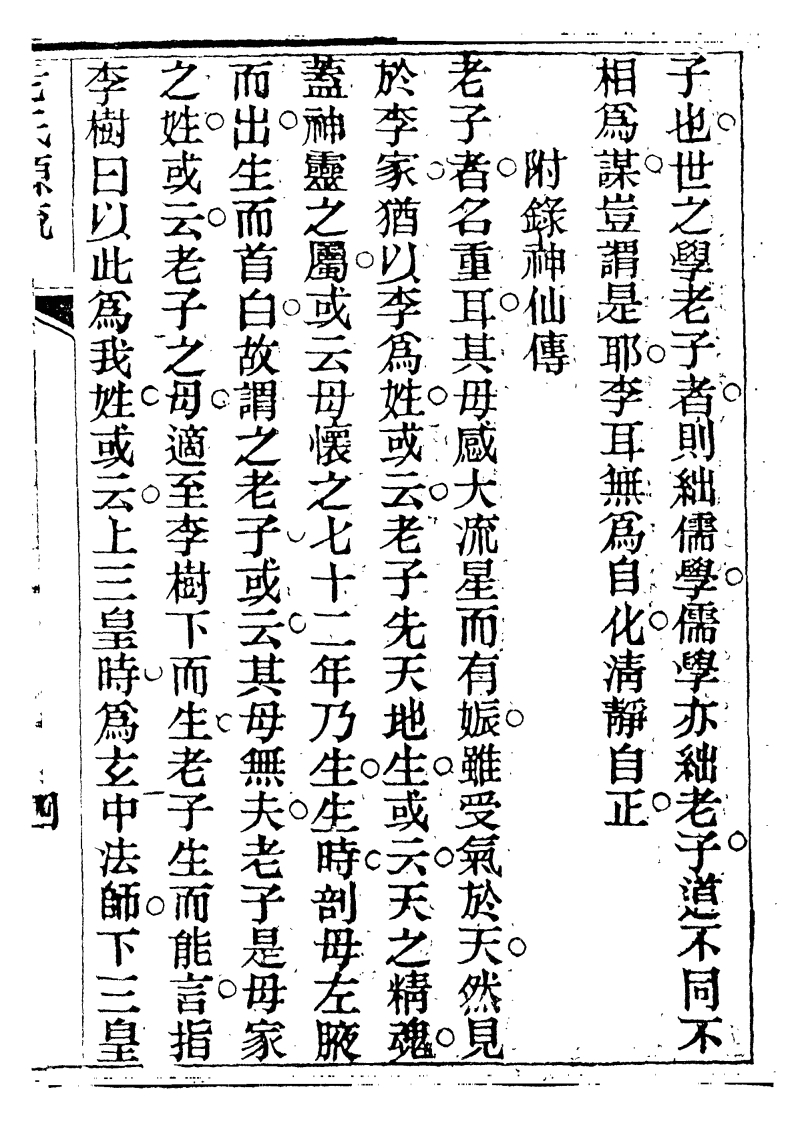 子也世之學老子者則絀儒學儒學亦絀老子道不同不
相爲謀豈謂是耶李耳無爲自化清靜自正
附錄神仙傳
老子者名重耳其母感大流星而有娠雖受氣於天然見
於李家猶以李爲姓或云老子先天地生或云天之精魂
蓋神靈之屬或云母懷之七十二年乃生生時剖母左腋
而出生而首白故謂之老子或云其母無夫老子是母家
之姓或云老子之母適至李樹下而生老子生而能言指
李樹曰以此爲我姓或云上三皇時爲玄中法師下三皇
四